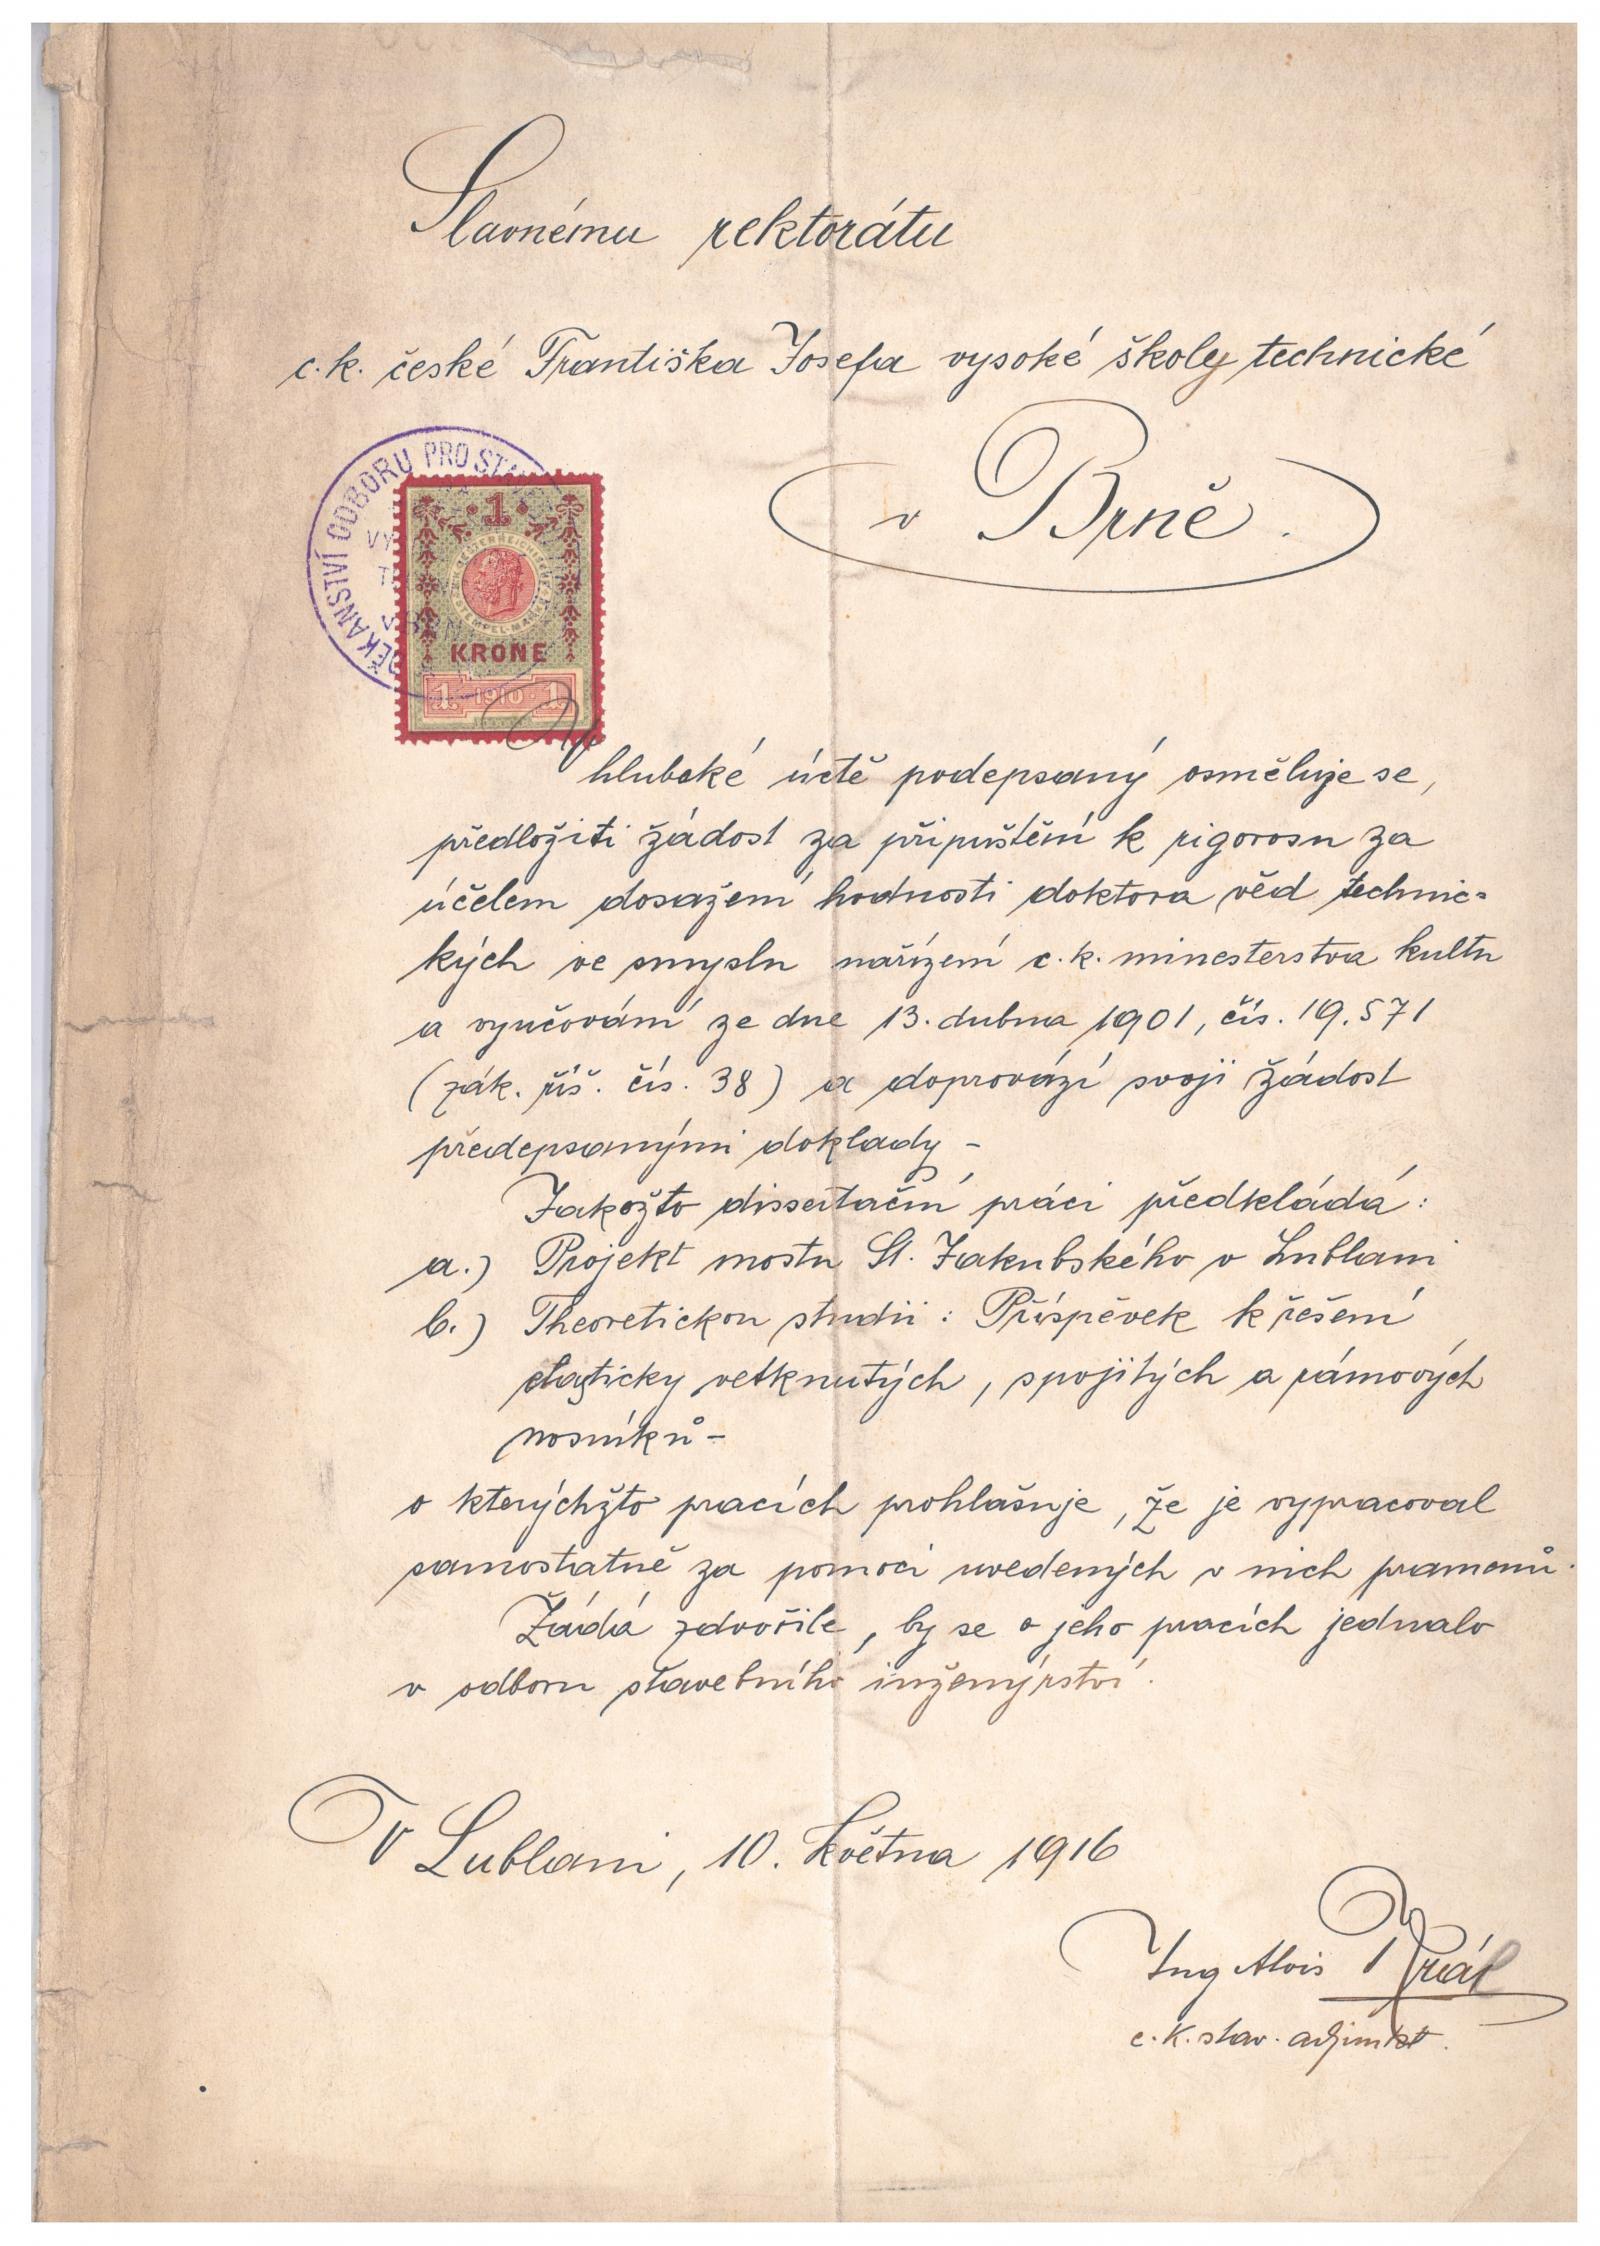 Slavnému rektorátu
c. k. české Františka Josefa vysoké školy technické
v Brně.
DĚKANSTVÍ ODBORU PRO
1
OESTERREICHISCHE
STEMPEL-MARKE
KRONE
1 1910 1
V hluboké úctě podepsaný osměluje se,
předložiti žádost za připuštění k rigorosu za
účelem dosažení hodnosti doktora věd technic-
kých ve smyslu nařízení c. k. ministerstva kultu
a vyučování ze dne 13. dubna 1901, čís. 19.571
(zák. říš. čís. 38) a doprovází svoji žádost
předepsanými doklady –
Jakožto dissertační práci předkládá:
a.) Projekt mostu St. Jakubského v Lublani
b.) Theoretickou studii: Příspěvek k řešení
elasticky vetknutých, spojitých a rámových
nosníků –
o kterýchžto pracích prohlašuje, že je vypracoval
samostatně za pomoci uvedených v nich pramenů.
Žádá zdvořile, by se o jeho pracích jednalo
v odboru stavebního inženýrství.
V Lublani, 10. května 1916
Ing Alois Král
c. k. stav. adjunkt.